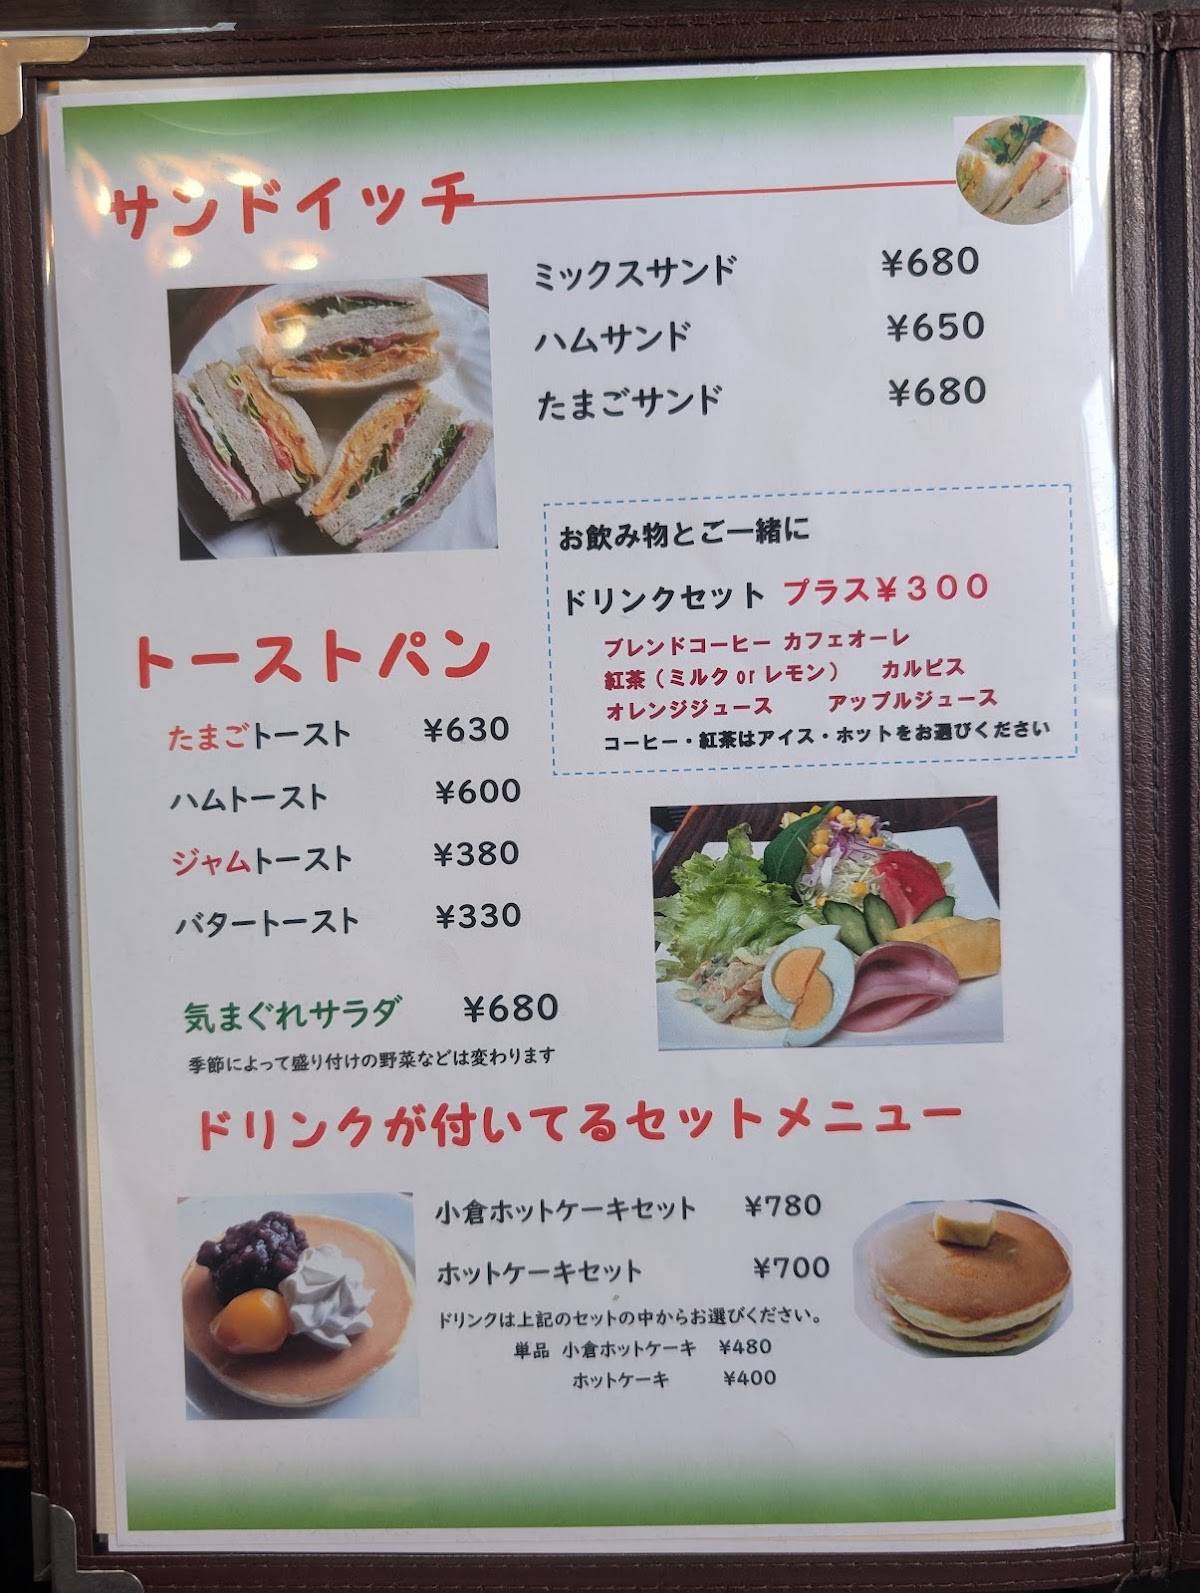 サンドイッチ
ミックスサンド ¥680
ハムサンド ¥650
たまごサンド ¥680
お飲み物とご一緒に
ドリンクセット プラス¥300
ブレンドコーヒー カフェオーレ
紅茶(ミルクorレモン) カルピス
オレンジジュース アップルジュース
コーヒー・紅茶はアイス・ホットをお選びください
トーストパン
たまごトースト ¥630
ハムトースト ¥600
ジャムトースト ¥380
バタートースト ¥330
気まぐれサラダ ¥680
季節によって盛り付けの野菜などは変わります
ドリンクが付いてるセットメニュー
小倉ホットケーキセット ¥780
ホットケーキセット ¥700
ドリンクは上記のセットの中からお選びください。
単品 小倉ホットケーキ ¥480
ホットケーキ ¥400